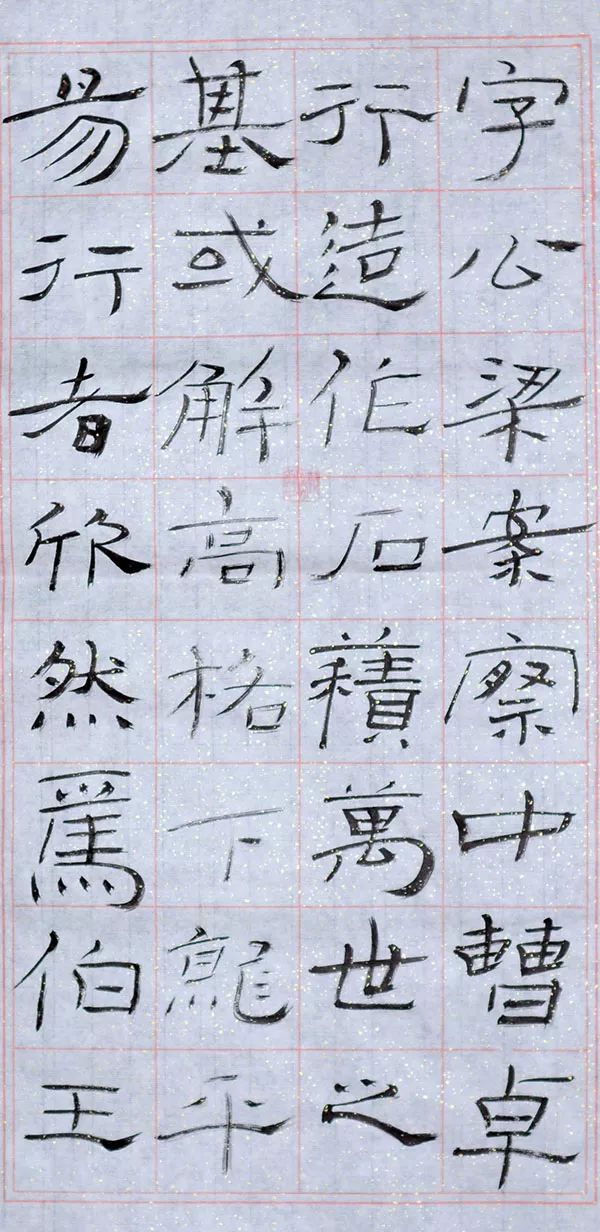 字公梁案察中曹卓
行造作石積萬世之
基或解高格下就平
易行者欣然焉伯王